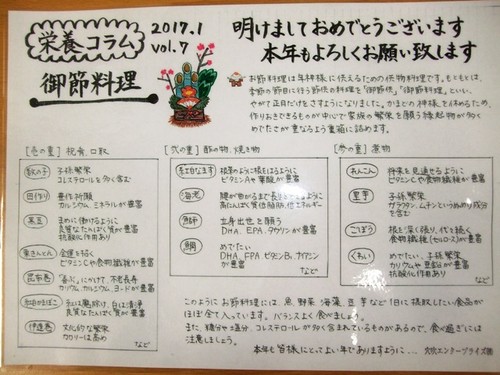 栄養コラム
2017.1
vol.7
明けましておめでとうございます
本年もよろしくお願い致します
御節料理
お節料理は年神様に供えるための供物料理です。もともとは、
季節の節目に行う節供の料理を「御節供」「御節」といい、
やがて正月だけをさすようになりました。かまどの神様を休めるため、
作りおきできるものが中心で家族の繁栄を願う縁起物が多く
めでたさが重なるよう重箱に詰めます。
[壱の重] 祝肴、口取
数の子 子孫繁栄
コレステロールを多く含む
田作り 豊作祈願
カルシウム、ミネラルが豊富
黒豆 まめに働けるように
良質なたんぱく質が豊富
抗酸化作用あり
栗きんとん 金運を招く
ビタミンCや食物繊維が豊富
昆布巻 「喜ぶ」にかけて、不老長寿
カリウム、カルシウム、ヨードが豊富
紅白かまぼこ 紅は魔除け、白は清浄
良質なたんぱく質が豊富
伊達巻 文化的な繁栄
カロリーは高め
など
[弐の重] 酢の物、焼き物
紅白なます 根菜のように根をはるように
ビタミンAや葉酸が豊富
海老 腰が曲がるまで長生きできるように
高たんぱく質低脂肪、低エネルギー
鰤 立身出世を願う
DHA、EPA、タウリンが豊富
鯛 めでたい
DHA、EPA、ビタミンB1、ナイアシン
が豊富
など
[参の重] 煮物
れんこん 将来を見通せるように
ビタミンCや食物繊維が豊富
里芋 子孫繁栄
ガラクタン、ムチンというぬめり成分
を含む
ごぼう 根を深く張り、代を続く
食物繊維(セルロース)が豊富
くわい めでたい、子孫繁栄
カリウムや亜鉛が豊富
抗酸化作用あり
など
このように、お節料理には、魚、野菜、海藻、豆、芋など1日に摂取したい食品が
ほぼ全て入っています。バランスよく食べましょう。
また、糖分や塩分、コレステロールが多く含まれているものがあるので、食べ過ぎには
注意しましょう。
本年も皆様にとってよい年でありますように…
エンタープライズ㈱